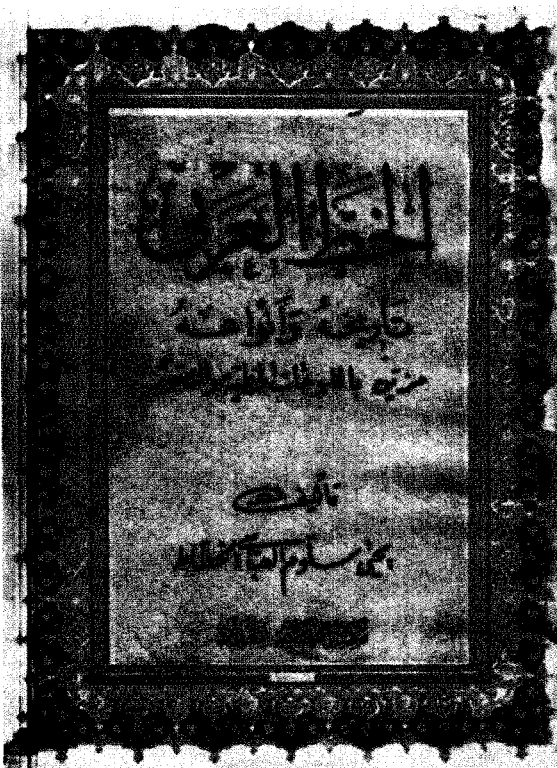 الخط العربي
تاريخه وأنواعه
مزين باللوحات الخطية
تأليف
يحيى سلوم العباسي الخطاط